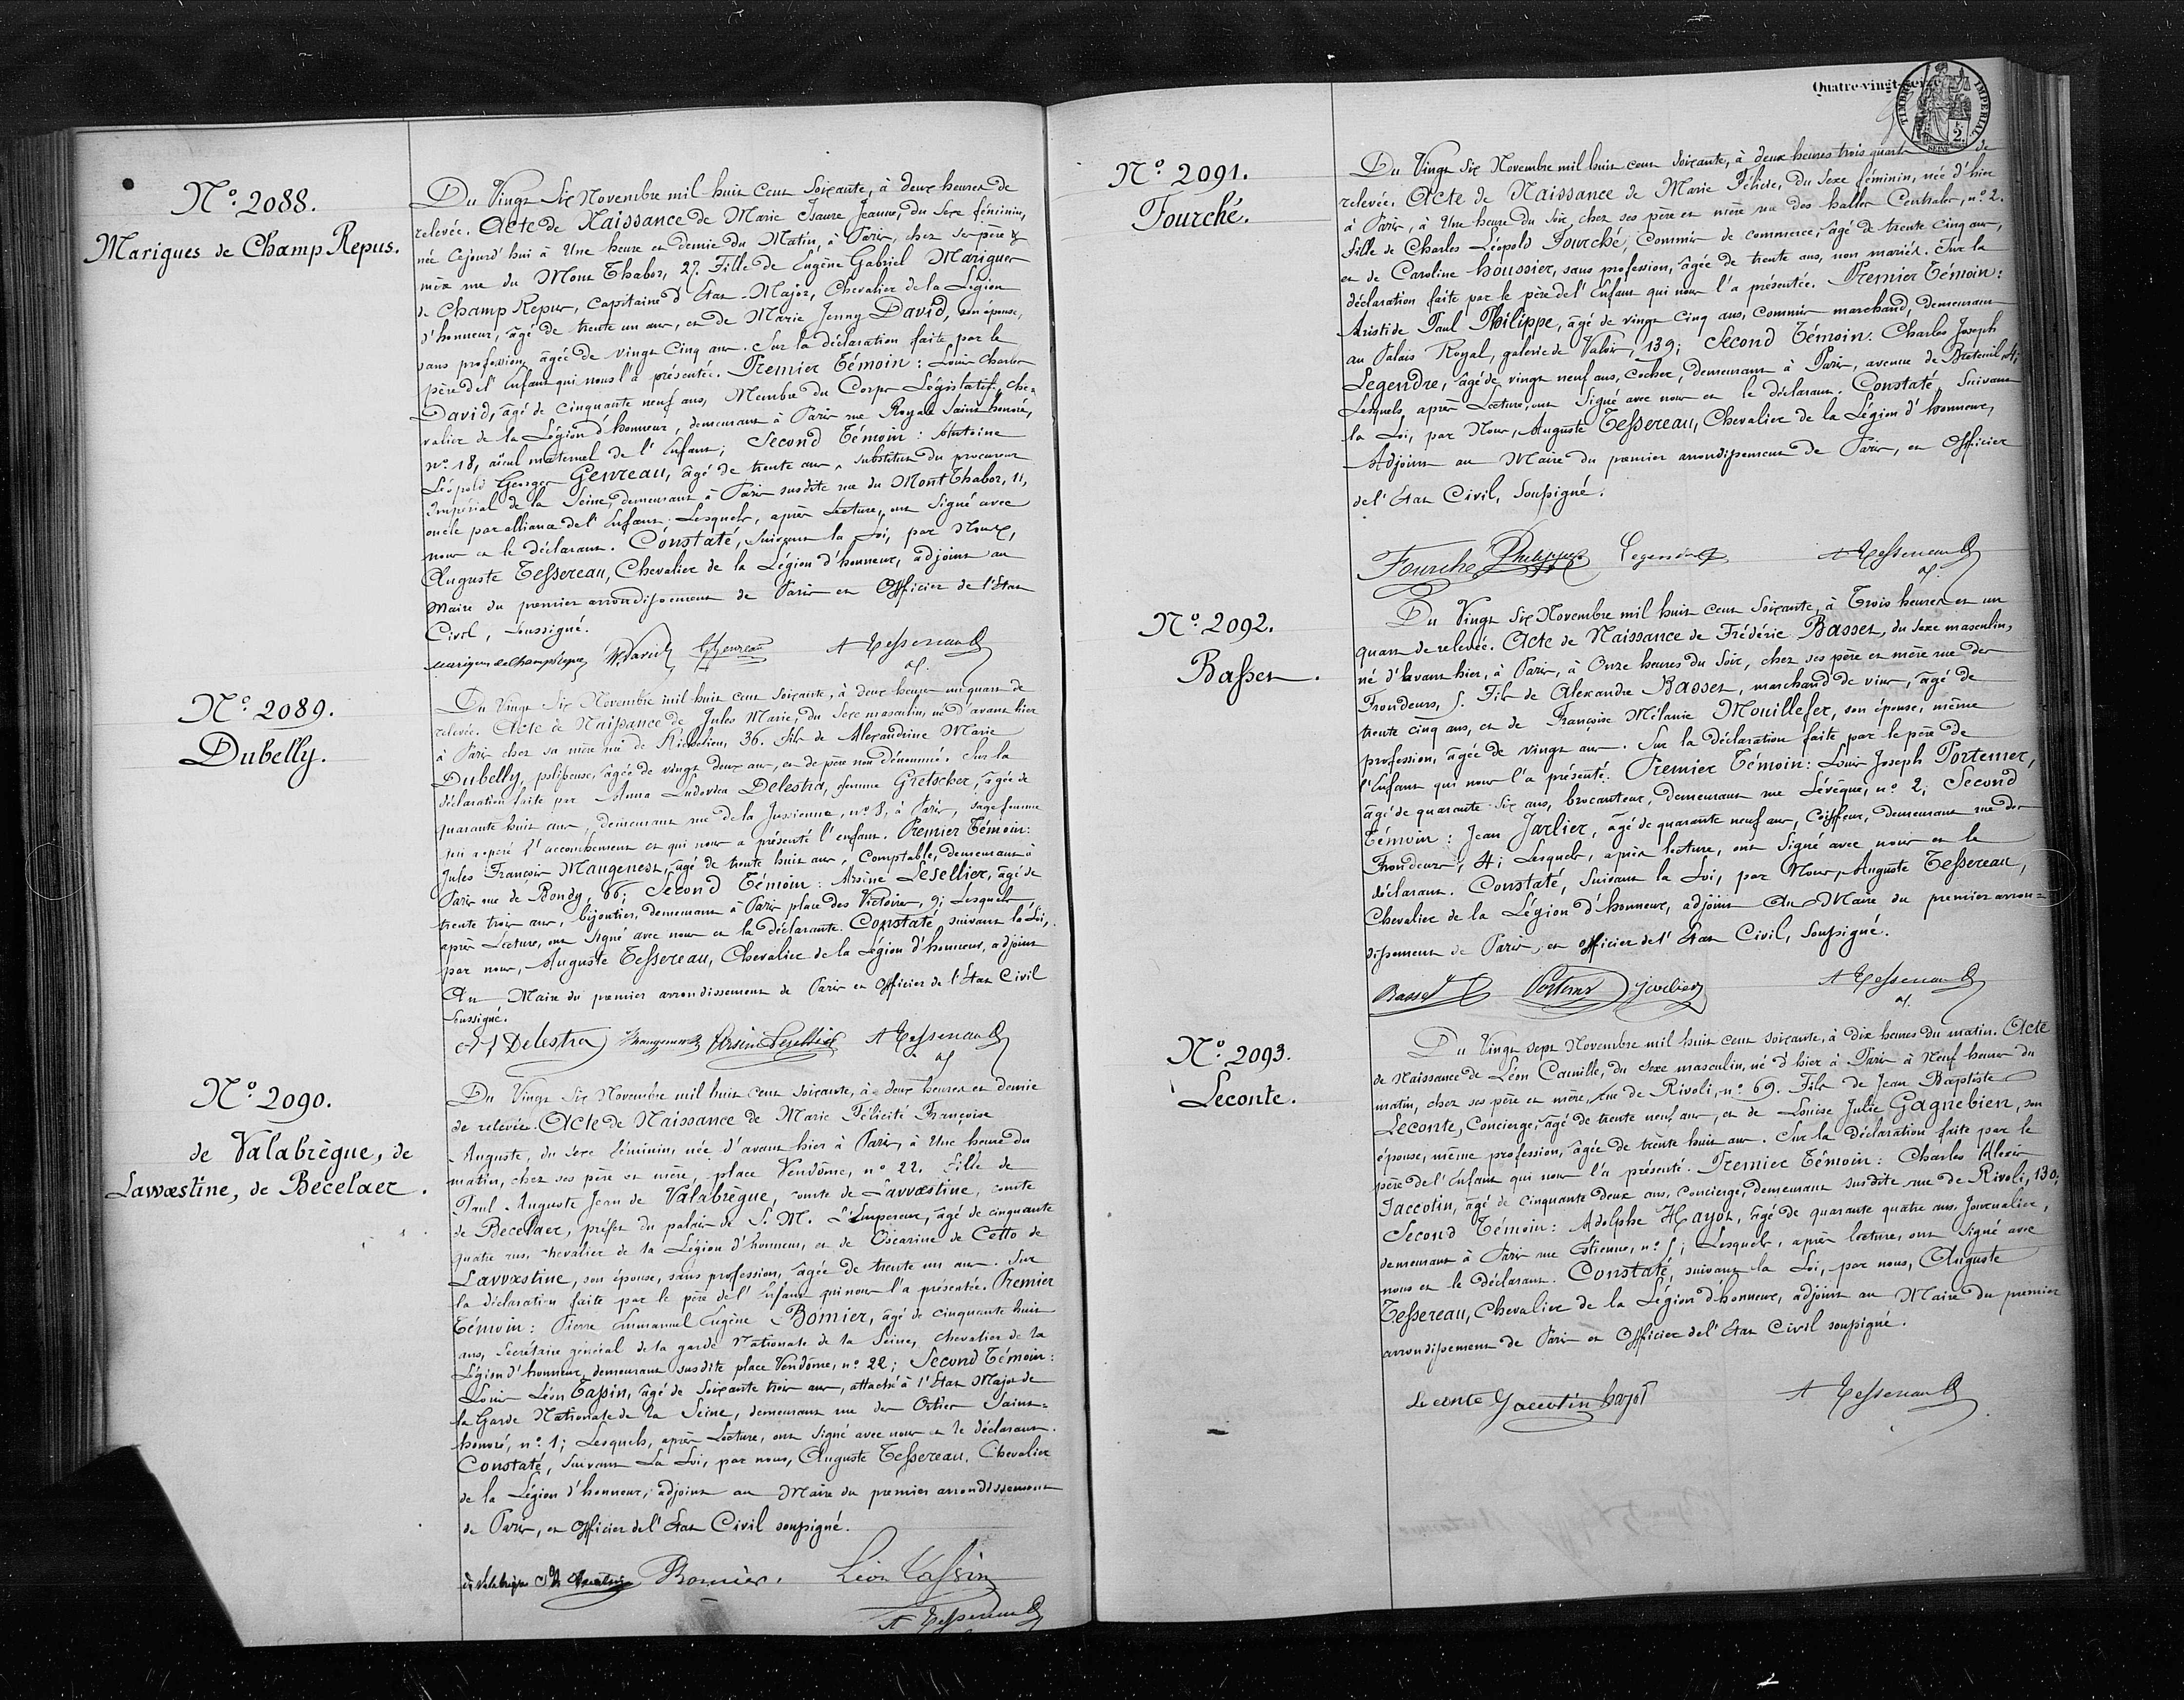 N° 2088.
Marigues de Champ Repus.
Du Vingt Six Novembre mil huit cent Soixante, à deux heures de
relevée. Acte de Naissance de Marie Isaure Jeanne, du Sexe féminin,
née Cejourd'hui à Une heure et demie du Matin, à Paris, chez ses père &
mère rue du Mont Thabor, 27. Fille de Eugène Gabriel Marigues
de Champ Repus, Capitaine d'Etat-Major, Chevalier de la Légion
d'honneur, âgé de trente un ans, et de Marie Jenny David, son épouse,
sans profession, âgée de vingt Cinq ans. Sur la déclaration faite par le
père de l'Enfant qui nous l'a présentée. Premier Témoin : Louis Charles
David, âgé de cinquante neuf ans, Membre du Corps Législatif, che=
valier de la Légion d'honneur, demeurant à Paris rue Royale Saint honoré,
n° 18, aïeul maternel de l'Enfant ; Second Témoin : Antoine
Léopold Georges Genreau, âgé de trente ans, substitut du procureur
Impérial de la Seine, demeurant à Paris susdite rue du Mont Thabor, 11,
oncle par alliance de l'Enfant. Lesquels, après Lecture, ont Signé avec
nous et le déclarant. Constaté, Suivant la Loi, par Nous,
Auguste Tessereau, Chevalier de la Légion d'honneur, adjoint au
Maire du premier arrondissement de Paris et Officier de l'Etat
Civil, soussigné.
Marigues de Champ Repus David Genreau A Tessereau
N° 2089.
Dubelly.
Du Vingt Six Novembre mil huit cent soixante, à deux heures un quart de
relevée. Acte de Naissance de Jules Marie, du Sexe masculin, né d'avant hier
à Paris chez sa mère rue de Richelieu, 36. fils de Alexandrine Marie
Dubelly, polisseuse, âgée de vingt deux ans, et de père non dénommé. Sur la
déclaration faite par Anna Ludovica Delestra, femme Gretscher, âgée de
quarante huit ans, demeurant rue de la Jussienne, n° 8, à Paris, sage femme
qui a opéré l'accouchement et qui nous a présenté l'enfant. Premier Témoin :
Jules François Maugenest, âgé de trente huit ans, Comptable, demeurant à
Paris rue de Bondy, 66 ; Second Témoin : Arsène Lesellier, âgé de
trente trois ans, bijoutier, demeurant à Paris place des Victoires, 9 ; Lesquels
après Lecture, ont Signé avec nous et la déclarante. Constaté suivant la Loi,
par nous, Auguste Tessereau, Chevalier de la Légion d'honneur, adjoint
Au Maire du premier arrondissement de Paris et Officier de l'Etat Civil
soussigné.
Delestra Maugenest Arsène Lesellier A Tessereau
N° 2090.
de Valabrègue, de
Lawœstine, de Becelaer.
Du Vingt Six Novembre mil huit cent soixante, à deux heures et demie
de relevée. Acte de Naissance de Marie Félicité Françoise
Auguste, du sexe féminin, née d'avant hier à Paris, à Une heure du
matin, chez ses père et mère, place Vendôme, n° 22. Fille de
Paul Auguste Jean de Valabrègue, comte de Lawœstine, comte
de Becelaer, préfet du palais de S. M. L'Empereur, âgé de cinquante
quatre ans, chevalier de la Légion d'honneur, et de Oscarine de Cetto de
Lawœstine, son épouse, sans profession, âgée de trente un ans. Sur
la déclaration faite par le père de l'Enfant qui nous l'a présentée. Premier
Témoin : Pierre Emmanuel Eugène Bomier, âgé de cinquante huit
ans, Secrétaire général de la garde Nationale de la Seine, chevalier de la
Légion d'honneur, demeurant susdite place Vendôme, n° 22 ; Second Témoin :
Louis Léon Tassin, âgé de soixante trois ans, attaché à l'Etat Major de
la Garde Nationale de la Seine, demeurant rue des Orties Saint=
honoré, n° 1 ; Lesquels, après Lecture, ont Signé avec nous et le déclarant.
Constaté, Suivant La Loi, par nous, Auguste Tessereau, Chevalier
de la Légion d'honneur, adjoint au Maire du premier arrondissement
de Paris, et Officier de l'Etat Civil soussigné.
de Valabrègue Bomier. Léon Tassin
A Tessereau
Quatre-vingt-seize
TIMBRE IMPÉRIAL
2
SEINE
N° 2091.
Fourché.
Du Vingt Six Novembre mil huit cent Soixante, à deux heures trois quarts de
relevée. Acte de Naissance de Marie Félicie, du Sexe féminin, née d'hier
à Paris, à Une heure du Soir, chez ses père et mère rue des halles Centrales, n° 2.
fille de Charles Léopold Fourché, Commis de commerce, âgé de trente Cinq ans,
et de Caroline houssier, sans profession, âgée de trente ans, non mariés. Sur la
déclaration faite par le père de l'Enfant qui nous l'a présentée. Premier Témoin :
Aristide Paul Philippe, âgé de vingt Cinq ans, Commis marchand, demeurant
au Palais Royal, galerie de Valois, 139 ; Second Témoin. Charles Joseph
Legendre, âgé de vingt neuf ans, Cocher, demeurant à Paris, avenue de Breteuil, 4 ;
Lesquels, après Lecture, ont Signé avec nous et le déclarant. Constaté, Suivant
la Loi, par Nous, Auguste Tessereau, Chevalier de la Légion d'honneur,
Adjoint au Maire du premier arrondissement de Paris, et Officier
de l'Etat Civil, Soussigné.
Fourché Philippe Legendre A Tessereau
N° 2092.
Basset.
Du Vingt Six Novembre mil huit cent Soixante, à Trois heures et un
quart de relevée. Acte de Naissance de Frédéric Basset, du Sexe masculin,
né d'avant hier, à Paris, à Onze heures du Soir, chez ses père et mère rue des
Frondeurs, 5. Fils de Alexandre Basset, marchand de vins, âgé de
trente cinq ans, et de Françoise Mélanie Mouillefer, son épouse, même
profession, âgée de vingt ans. Sur la déclaration faite par le père de
l'Enfant qui nous l'a présenté. Premier Témoin : Louis Joseph Portemer,
âgé de quarante-six ans, brocanteur, demeurant rue Lévêque, n° 2, Second
Témoin : Jean Jarlier, âgé de quarante neuf ans, Coiffeur, demeurant rue des
Frondeurs, 4 ; Lesquels, après lecture, ont Signé avec nous et le
déclarant. Constaté, Suivant la Loi, par Nous, Auguste Tessereau,
Chevalier de la Légion d'honneur, adjoint Au Maire du premier arron=
dissement de Paris, et Officier de l'Etat Civil, Soussigné.
Basset Portemer Jarlier A Tessereau
N° 2093.
Leconte.
Du Vingt sept Novembre mil huit cent soixante, à dix heures du matin. Acte
de Naissance de Léon Camille, du Sexe masculin, né d'hier à Paris à Neuf heures du
matin, chez ses père et mère, rue de Rivoli, n° 69. Fils de Jean Baptiste
Leconte, Concierge, âgé de trente neuf ans, et de Louise Julie Gagnebien, son
épouse, même profession, âgée de trente huit ans. Sur la déclaration faite par le
père de l'Enfant qui nous l'a présenté. Premier Témoin : Charles Alexis
Jaccotin, âgé de cinquante deux ans, Concierge, demeurant susdite rue de Rivoli, 130;
Second Témoin : Adolphe Hayot, âgé de quarante quatre ans, Journalier,
demeurant à Paris rue Estienne, n° 5 ; Lesquels, après lecture, ont Signé avec
nous et le déclarant. Constaté, suivant la Loi, par nous, Auguste
Tessereau, Chevalier de la Légion d'honneur, adjoint au Maire du premier
arrondissement de Paris et Officier de l'Etat Civil soussigné.
Leconte Jaccotin hayot A Tessereau